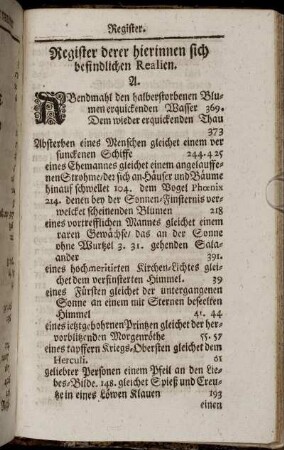 Register.
Register derer hierinnen sich
befindlichen Realien.
A.
ABendmahl den halberstorbenen Blu-
men erquickenden Wasser 369.
Dem wieder erquickenden Thau
373
Absterben eines Menschen gleichet einem ver
sunckenen Schiffe 244. 425
eines Ehemannes gleichet einem angelauffe-
nen Strohme/der sich an Häuser und Bäume
hinauf schwellet 104. dem Vogel Phœnix
214. denen bey der Sonnen-Finsternis ver-
welcket scheinenden Blumen 218
eines vortrefflichen Mannes gleichet einem
raren Gewächse/ das an der Sonne
ohne Wurtzel 3. 31. gehenden Sala-
ander 391.
eines hochmeritirten Kirchen-Lichtes glei-
chet dem verfinsterten Himmel. 39
eines Fürsten gleichet der untergangenen
Sonne an einem mit Sternen beseelten
Himmel 41. 44
eines ietztgebohrnen Printzen gleichet der her-
vorblitzenden Morgenröthe 55. 57
eines tapffern Kriegs-Obersten gleichet dem
Herculi. 61
geliebter Personen einem Pfeil an den Lie-
bes-Bilde. 148. gleichet Spieß und Creu-
tze in eines Löwen Klauen 193
einen